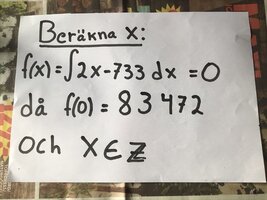 Beräkna x:
f(x)=∫2x-733 dx =0
då f(0)=83472
och X∈Z